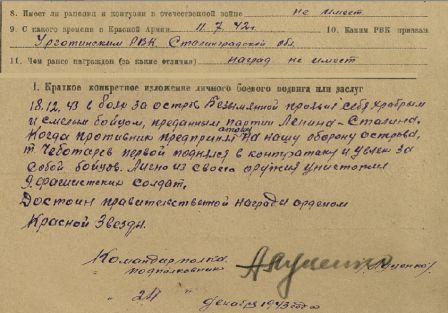 8. Имеет ли ранения и контузии в отечественной войне не имеет
9. С какого времени в Красной Армии 11.7.42г. 10. Каким РВК призван
РВК Сталинградской обл.
11. Чем ранее награжден (за какие отличия) наград не имеет
I. Краткое конкретное изложение личного боевого подвига или заслуг
18.12.43 в бою за остров Безымянной проявил себя храбрым
и смелым бойцом, преданным партии Ленина-Сталина.
Когда противник предпринял атаку на нашу оборону острова,
т. Чеботарев первой поднялся в контратаку и увлек за
собой бойцов. Лично из своего оружия уничтожил
фашистских солдат.
Достоин правительственной награды орденом
Красной Звезды.
Командир полка
подполковник
декабря 1943 года